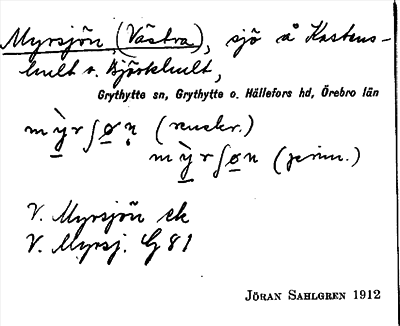 Myrsjön (Västra), sjö å Kastens-
hult o. Björkhult,
Grythytte sn, Grythytte o. Hällefors hd, Örebro län
V. Myrsjön ek
V. Myrsj. G 81
JÖRAN SAHLGREN 1912